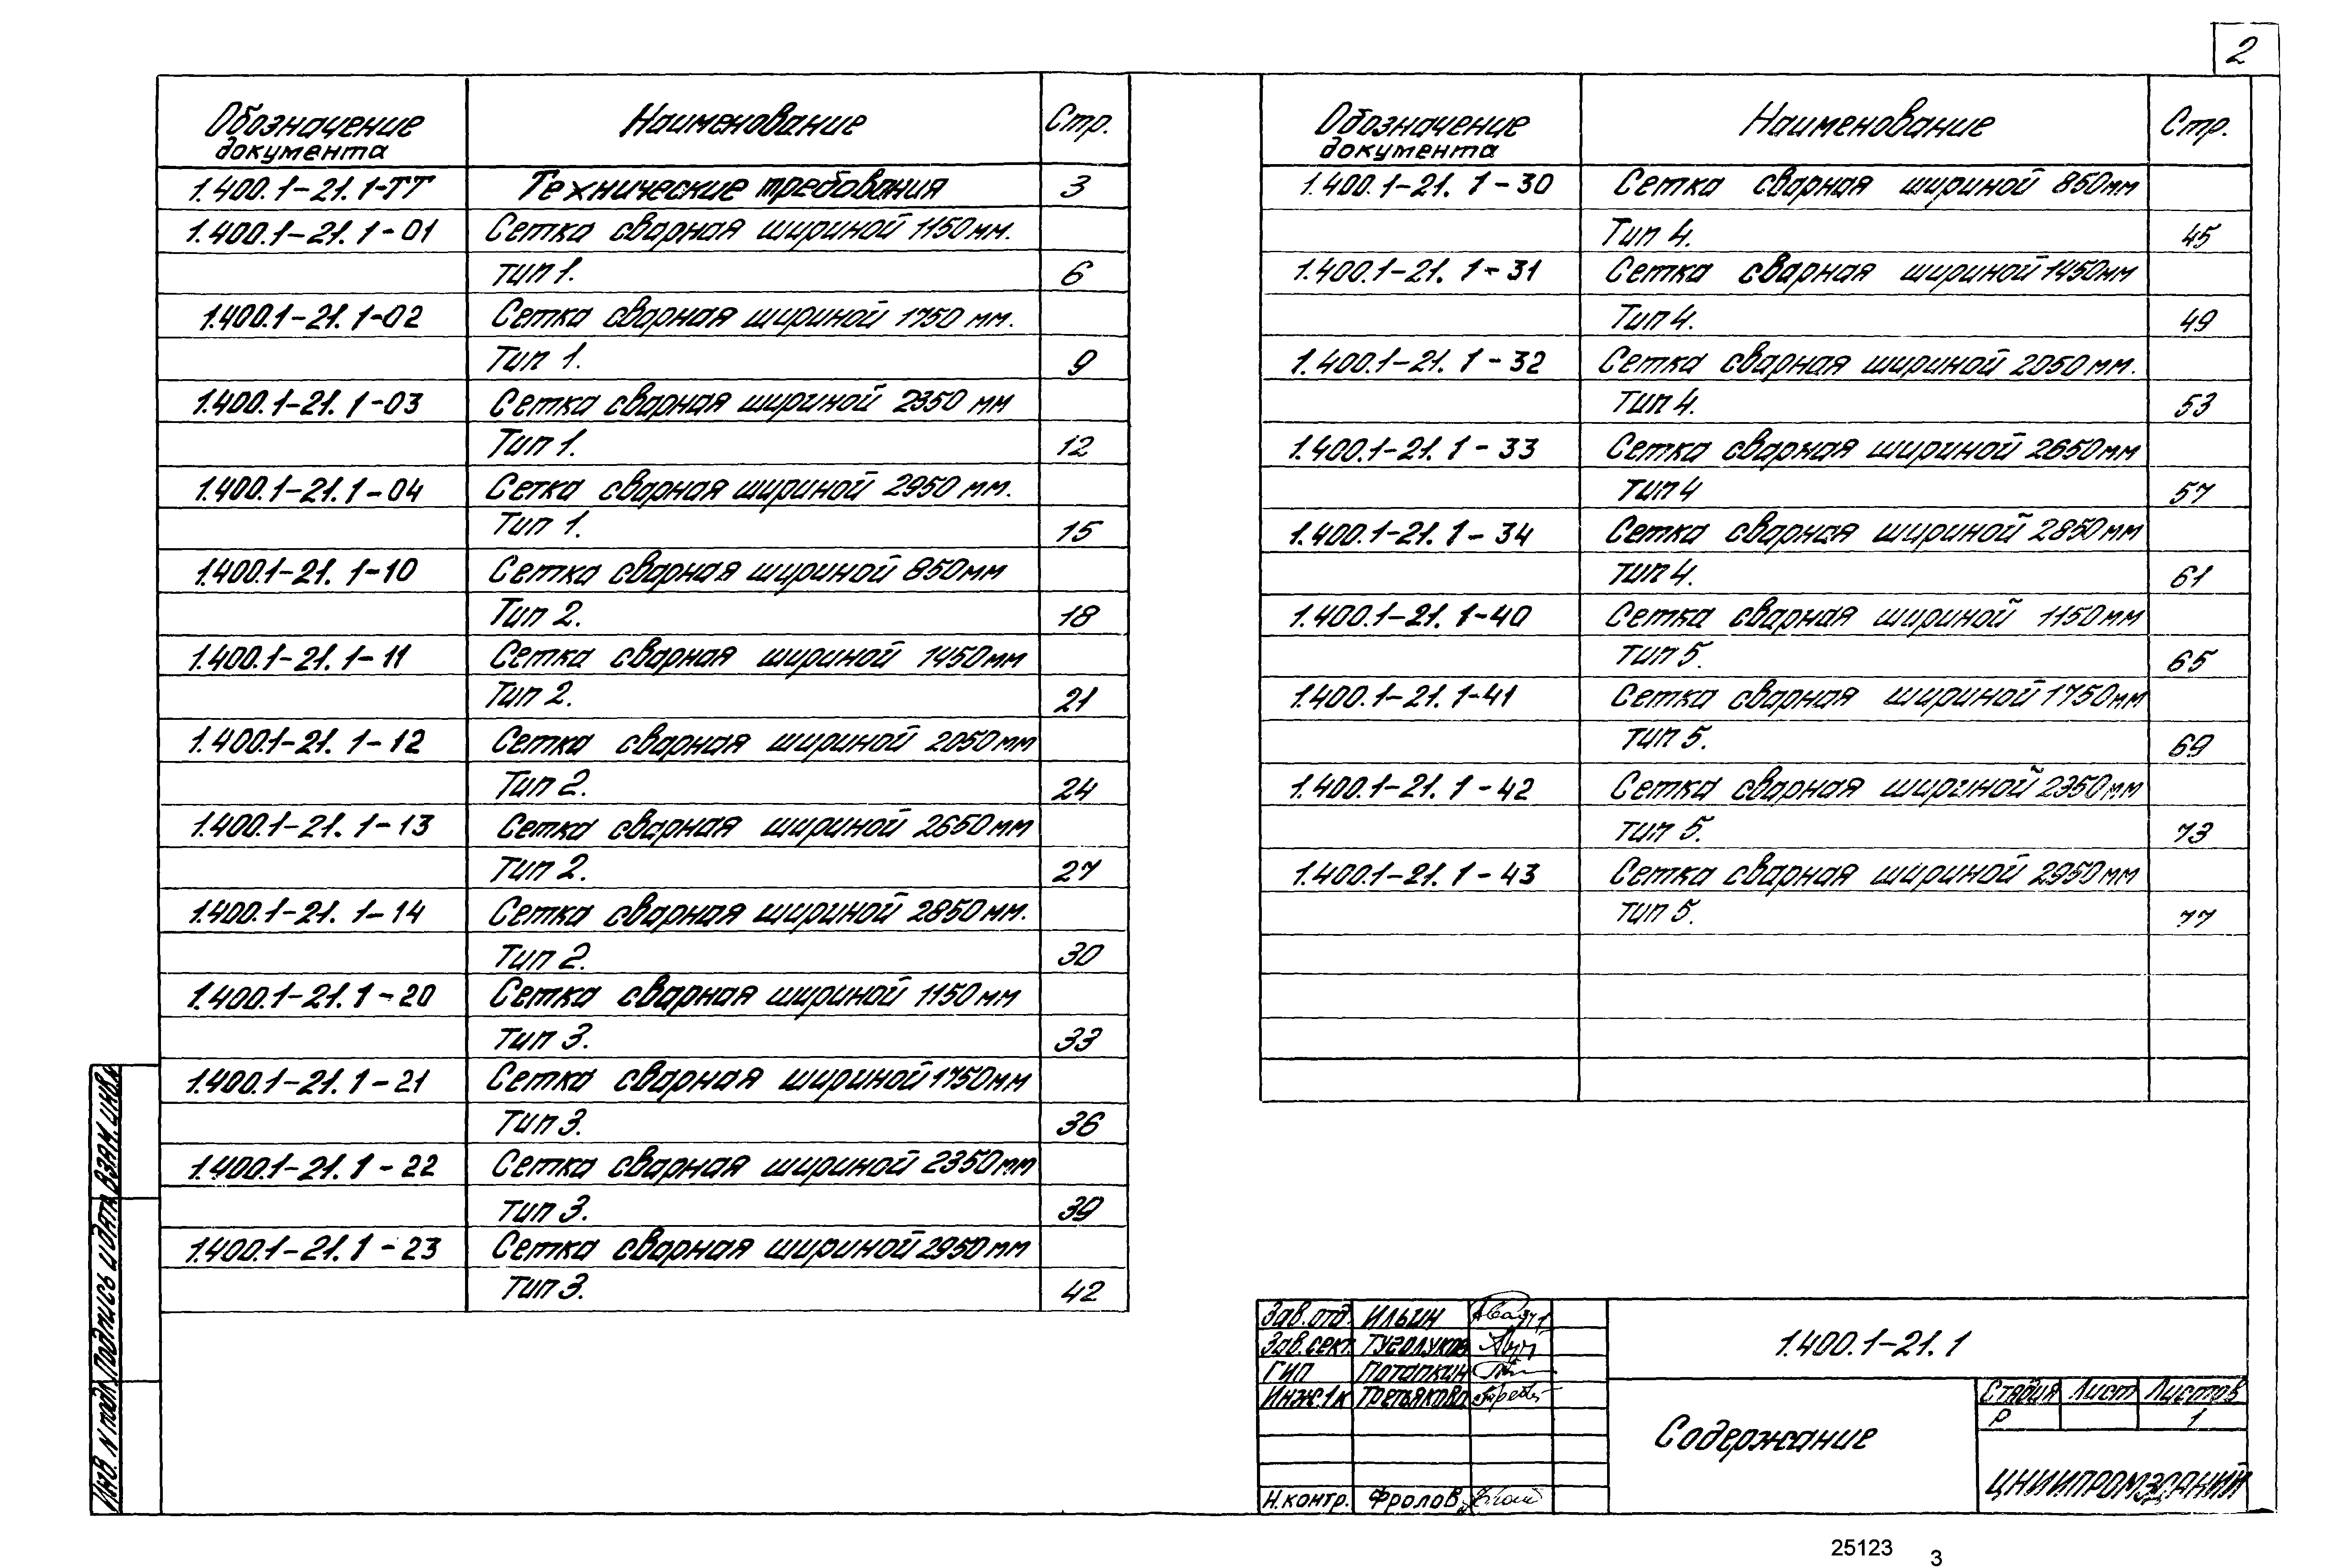 2
Обозначение документа Наименование Стр.
1.400.1-21.1-ТТ Технические требования 3
1.400.1-21.1-01 Сетка сварная шириной 1150мм.
тип 1. 6
1.400.1-21.1-02 Сетка сварная шириной 1750 мм.
Тип 1. 9
1.400.1-21.1-03 Сетка сварная шириной 2350 мм
Тип 1. 12
1.400.1-21.1-04 Сетка сварная шириной 2950 мм.
Тип 1. 15
1.400.1-21.1-10 Сетка сварная шириной 850мм
Тип 2. 18
1.400.1-21.1-11 Сетка сварная шириной 1450мм
Тип 2. 21
1.400.1-21.1-12 Сетка сварная шириной 2050мм
Тип 2. 24
1.400.1-21.1-13 Сетка сварная шириной 2650мм
Тип 2. 27
1.400.1-21.1-14 Сетка сварная шириной 2850мм.
Тип 2. 30
1.400.1-21.1-20 Сетка сварная шириной 1150мм
Тип 3. 33
1.400.1-21.1-21 Сетка сварная шириной 1750мм
Тип 3. 36
1.400.1-21.1-22 Сетка сварная шириной 2350мм
тип 3. 39
1.400.1-21.1-23 Сетка сварная шириной 2950мм
тип 3. 42
Обозначение документа Наименование Стр.
1.400.1-21.1-30 Сетка сварная шириной 850мм
Тип 4. 45
1.400.1-21.1-31 Сетка сварная шириной 1450мм
Тип 4. 49
1.400.1-21.1-32 Сетка сварная шириной 2050мм.
Тип 4. 53
1.400.1-21.1-33 Сетка сварная шириной 2650мм
тип 4 57
1.400.1-21.1-34 Сетка сварная шириной 2850мм
тип 4. 61
1.400.1-21.1-40 Сетка сварная шириной 1150мм
тип 5. 65
1.400.1-21.1-41 Сетка сварная шириной 1750мм
тип 5. 69
1.400.1-21.1-42 Сетка сварная шириной 2350мм
тип 5. 73
1.400.1-21.1-43 Сетка сварная шириной 2950мм
тип 5. 77
Инв. N подл. Подпись и дата Взам. инв. N
Зав.отд. Ильин
Зав.сект. Туголуков
ГИП Потапкин
Инж.1к Третьякова
Н.контр. Фролов
1.400.1-21.1
Содержание
Стадия Лист Листов
Р 1
ЦНИИПРОМЗДАНИЙ
25123 3